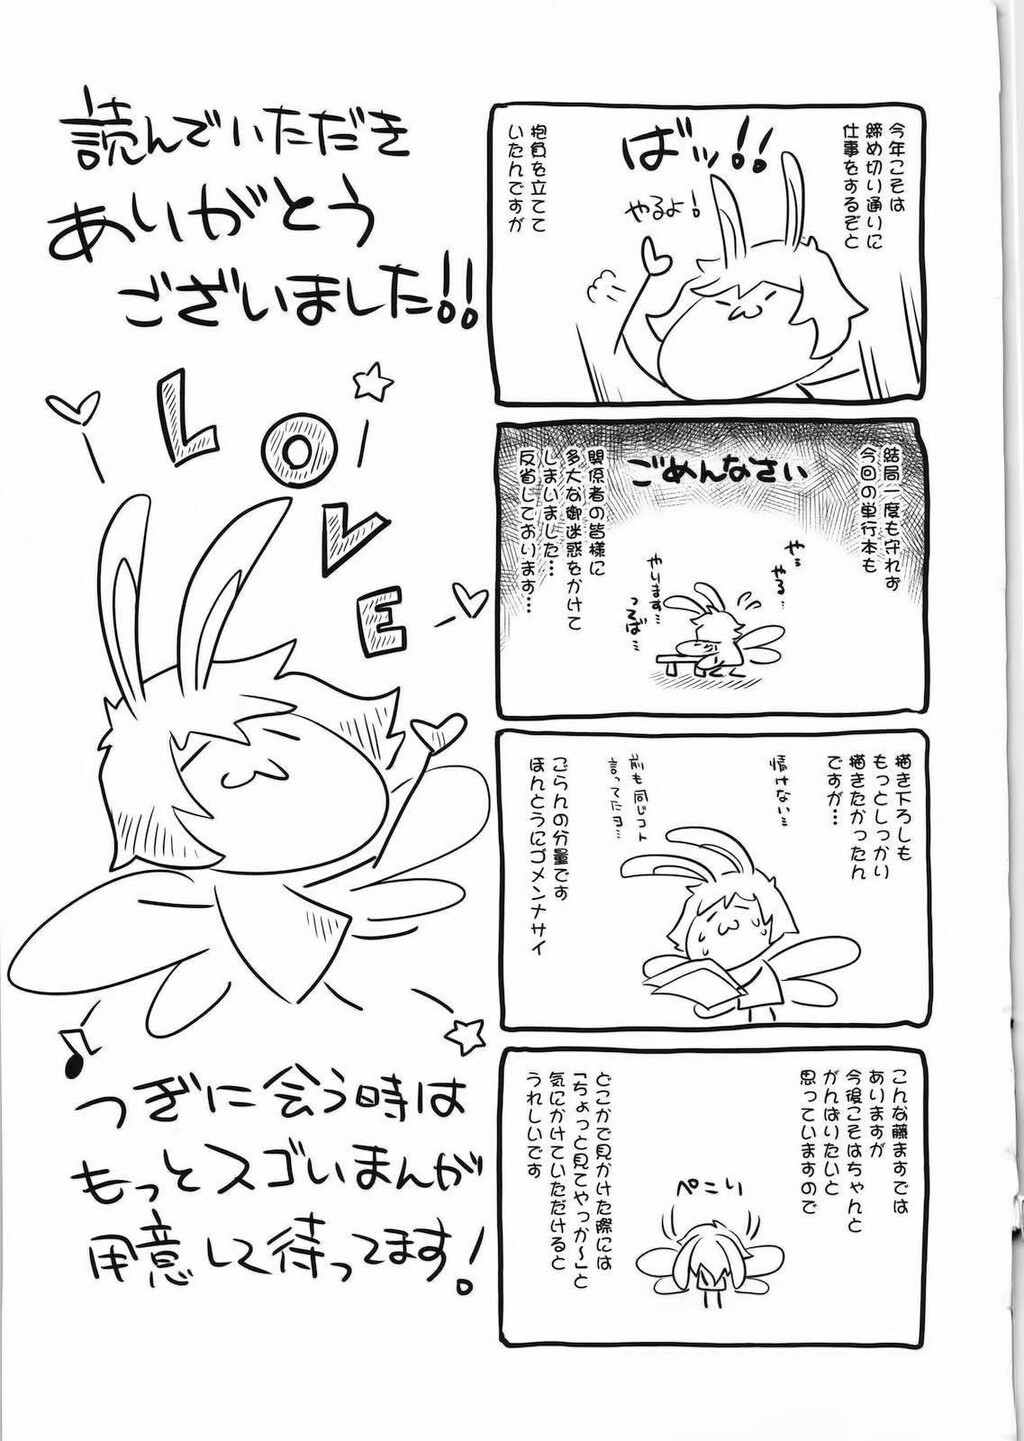 今年こそは
締め切り通りに
仕事をするぞと
ばッ!!
やるよ!
抱負を立てて
いたんですが
結局一度も守れず
今回の単行本も
ごめんなさい
やる…
やります…
関係者の皆様に
多大な御迷惑をかけて
しまいました…
反省しております…
描き下ろしも
もっとしっかり
描きたかったん
ですが…
情けない…
前も同じコト
言ってたヨ…
ごらんの分量です
ほんとうにゴメンナサイ
こんな藤ますでは
ありますが
今後こそはちゃんと
がんばりたいと
思っていますので
ぺこり
どこかで見かけた際には
「ちょっと見てやっか～」と
気にかけていただけると
うれしいです
読んでいただき
ありがとう
ございました!!
LOVE
つぎに会う時は
もっとスゴいまんが
用意して待ってます!